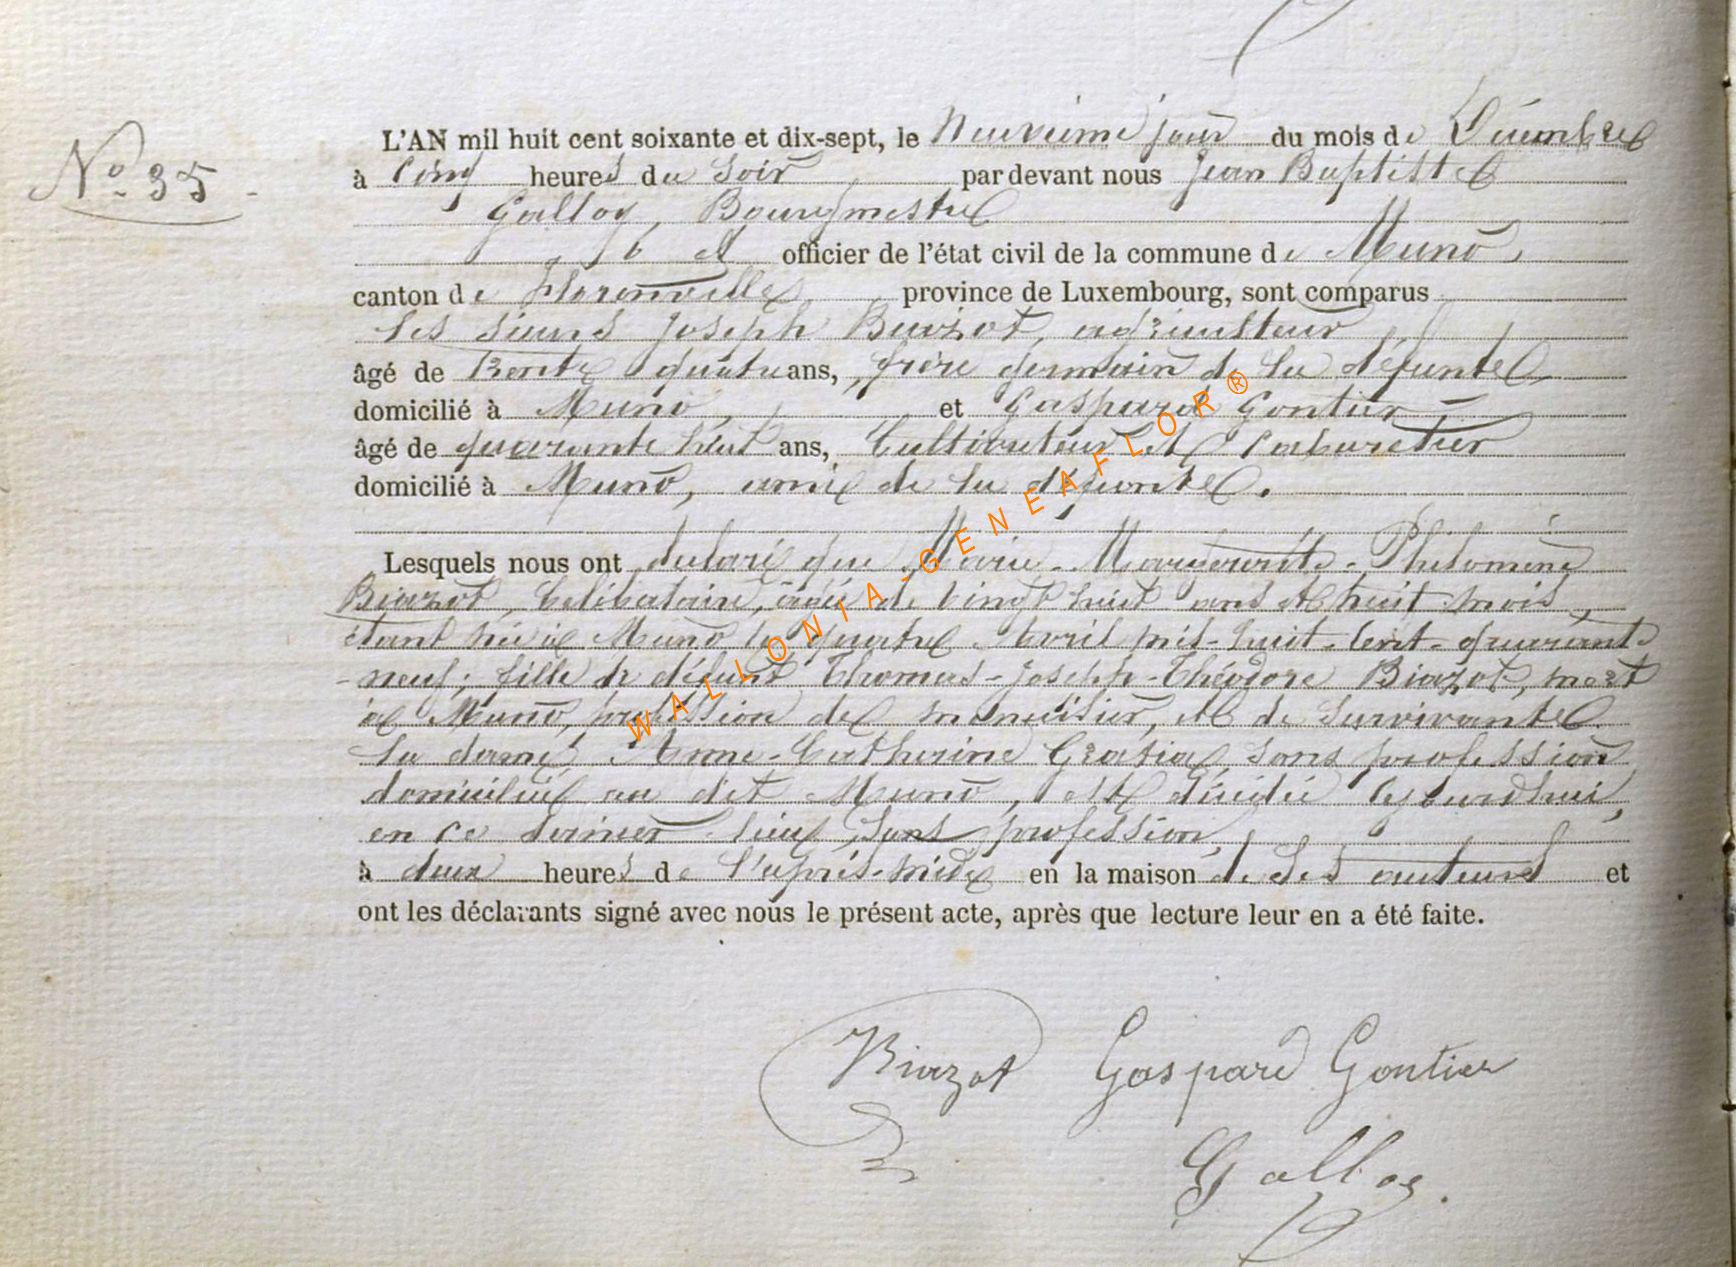 N° 35
L'AN mil huit cent soixante et dix-sept, le Neuvième jour du mois de Décembre
à Cinq heures du Soir par devant nous Jean Baptiste
Galloy, Bourgmestre
et officier de l'état civil de la commune de Muno,
canton de Florenville province de Luxembourg, sont comparus
les sieurs Joseph Biazot, agriculteur
âgé de Trente quatre ans, frère germain de la défunte
domicilié à Muno, et Gaspard Gontier,
âgé de quarante huit ans, Cultivateur et Cabaretier
domicilié à Muno, ami de la défunte.
Lesquels nous ont déclaré que Marie-Marguerite-Philomène
Biazot, Célibataire, âgée de Vingt huit ans et huit mois,
étant née à Muno le quatre Avril mil-huit-cent-quarante
-neuf; fille de défunt Thomas-Joseph-Théodore Biazot, mort
à Muno, profession de menuisier, et de Survivante
la dame Anne-Catherine Gratia, sans profession
domiciliée au dit Muno, est décédée Cejourdhui,
en ce dernier lieu, sans profession,
à deux heures de l'après-midi en la maison de Ses auteurs et
ont les déclarants signé avec nous le présent acte, après que lecture leur en a été faite.
Biazot Gaspard Gontier
Galloy.
WALLONIA-GENEAFLOR®